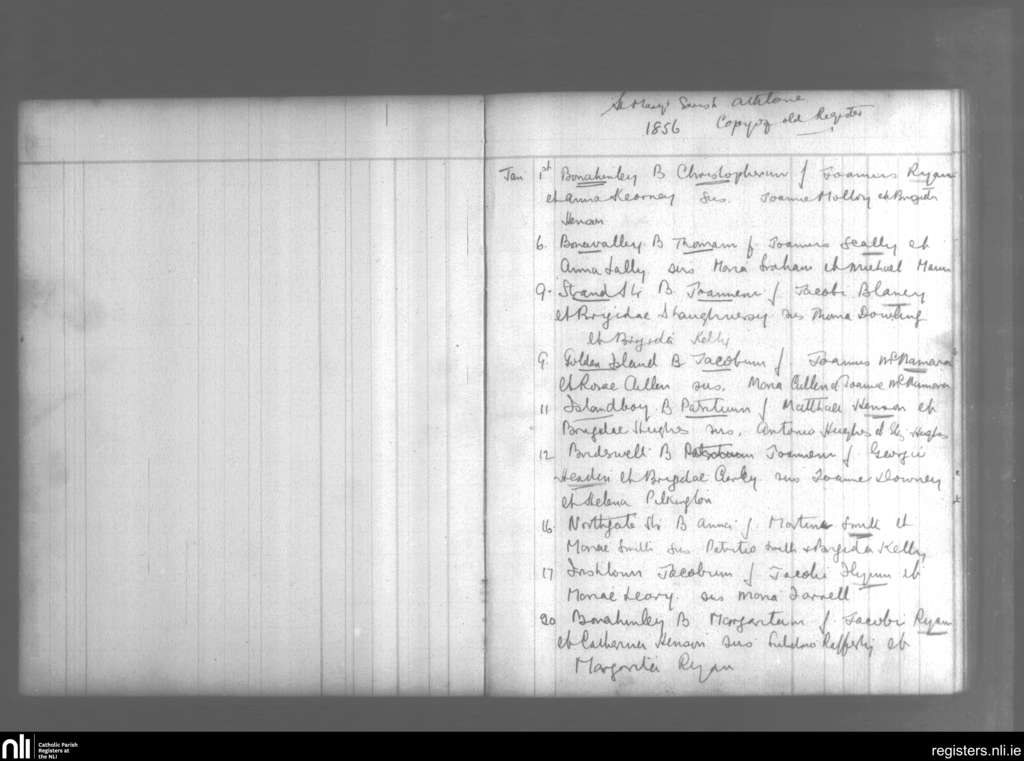 St Mary's Parish Athlone
1856 Copy of old Register
Jan 1st Bonahinley B Christopherum f Joannis Ryan
et Anna Kearney sus. Joanne Molloy et Brigida
Henson
6 Bonavalley B Thomam f. Joannis Scally et
Anna Lally sus Maria Graham et Michael Mann
9. Strand Str B Joannem f Jacobi Blaney
et Brigidae Shaughnessy sus Thoma Dowling
et Brigida Kelly
9 Golden Island B Jacobum f. Joannis McNamara
et Rosae Cullen sus. Maria Cullen & Joanne McNamara
11 Islandboy. B Patritium f Matthaei Henson et
Brigdae Hughes sus. Antonio Hughes et Eliz Hughes
12 Brideswell B Joannem f Georgii
Headin et Brigdae Curley sus Joanne Downey
et Helena Pilkington
16 Northgate Str B Anna f Martini Smith et
Mariae Smith sus Patritio Smith & Brigida Kelly
17 Irishtown Jacobum f Jacobi Flynn et
Mariae Leary. sus Maria Farrell
20 Bonahinley B Margaritam f. Jacobi Ryan
et Catherina Henson sus Rafferty et
Margarita Ryan
nli
Catholic Parish
Registers at
the NLI
registers.nli.ie